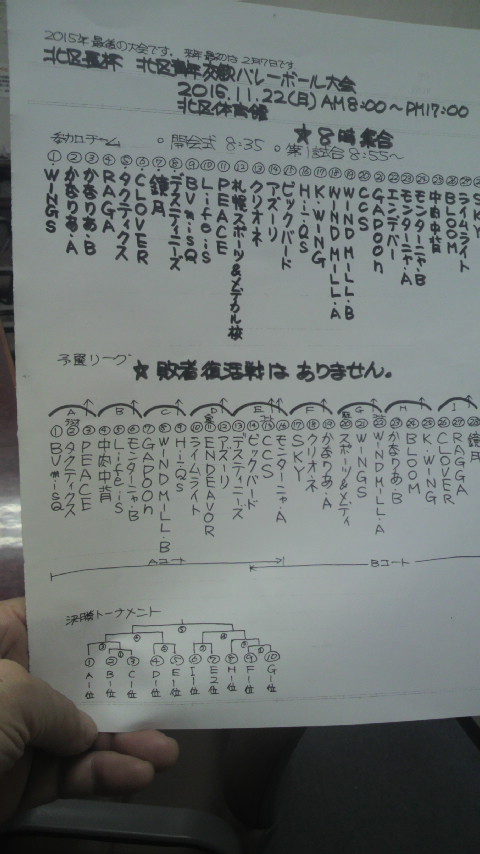 2015年最後の大会です。来年最初は2月7日です
北区長杯 北区青年交歓バレーボール大会
2015.11.22(日)AM8:00～PM17:00
北区体育館
★8時集合
参加チーム 。開会式 8:35 。第1試合 8:55～
①WINGS
②かなりあ・A
③かなりあ・B
④RAGA
⑤タクティクス
⑥CLOVER
⑦鏡月
⑧デスティニーズ
⑨BVmisQ
⑩Lifeis
⑪PEACE
⑫札幌スポーツ&メデカル校
⑬クリオネ
⑭アズーリ
⑮ビックバード
⑯Hi-QS
⑰K・WING
⑱WINDMILL・A
⑲WINDMILL・B
⑳CCS
㉑GAPOON
㉒エンデバー
㉓モンターニャ・A
㉔モンターニャ・B
㉕中肉中背
㉖BLOOM
㉗ライムライト
SKY
予選リーグ ★敗者復活戦はありません。
A B C D E F G H I
①BVmisQ
②タクティクス
③PEACE
④中肉中背
⑤Lifeis
⑥モンターニャ・B
⑦GAPOON
⑧WINDMILL・B
⑨Hi-QS
⑩ライムライト
⑪ENDEAVOR
⑫アズーリ
⑬デスティニーズ
⑭ビックバード
⑮CCS
⑯モンターニャ・A
⑰SKY
⑱クリオネ
⑲かなりあ・A
⑳スポーツ&メディ
㉑WINGS
㉒WINDMILL・A
㉓かなりあ・B
㉔BLOOM
㉕K・WING
㉖CLOVER
㉗RAGGA
㉘鏡月
Aコート Bコート
決勝トーナメント
① ② ③ ④ ⑤ ⑥ ⑦ ⑧ ⑨ ⑩
A1位 B1位 C1位 D1位 E1位 I1位 E2位 H1位 F1位 G1位